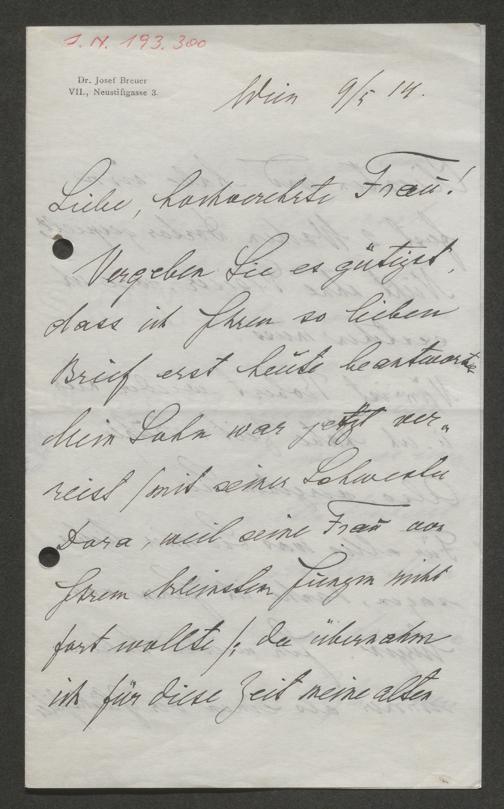 J. N. 193.300
Dr. Josef Breuer
VII., Neustiftgasse 3.
Wien 9/5 14.
Liebe, hochverehrte Frau!
Vergeben Sie es gütigst,
dass ich Ihren so lieben
Brief erst heute beantworte
Mein Sohn war jetzt ver„
reist /mit seiner Schwester
Dora, weil seine Frau von
Ihrem kleinsten Jungen nicht
fort wollte/; da übernahm
ich für diese Zeit meine alten